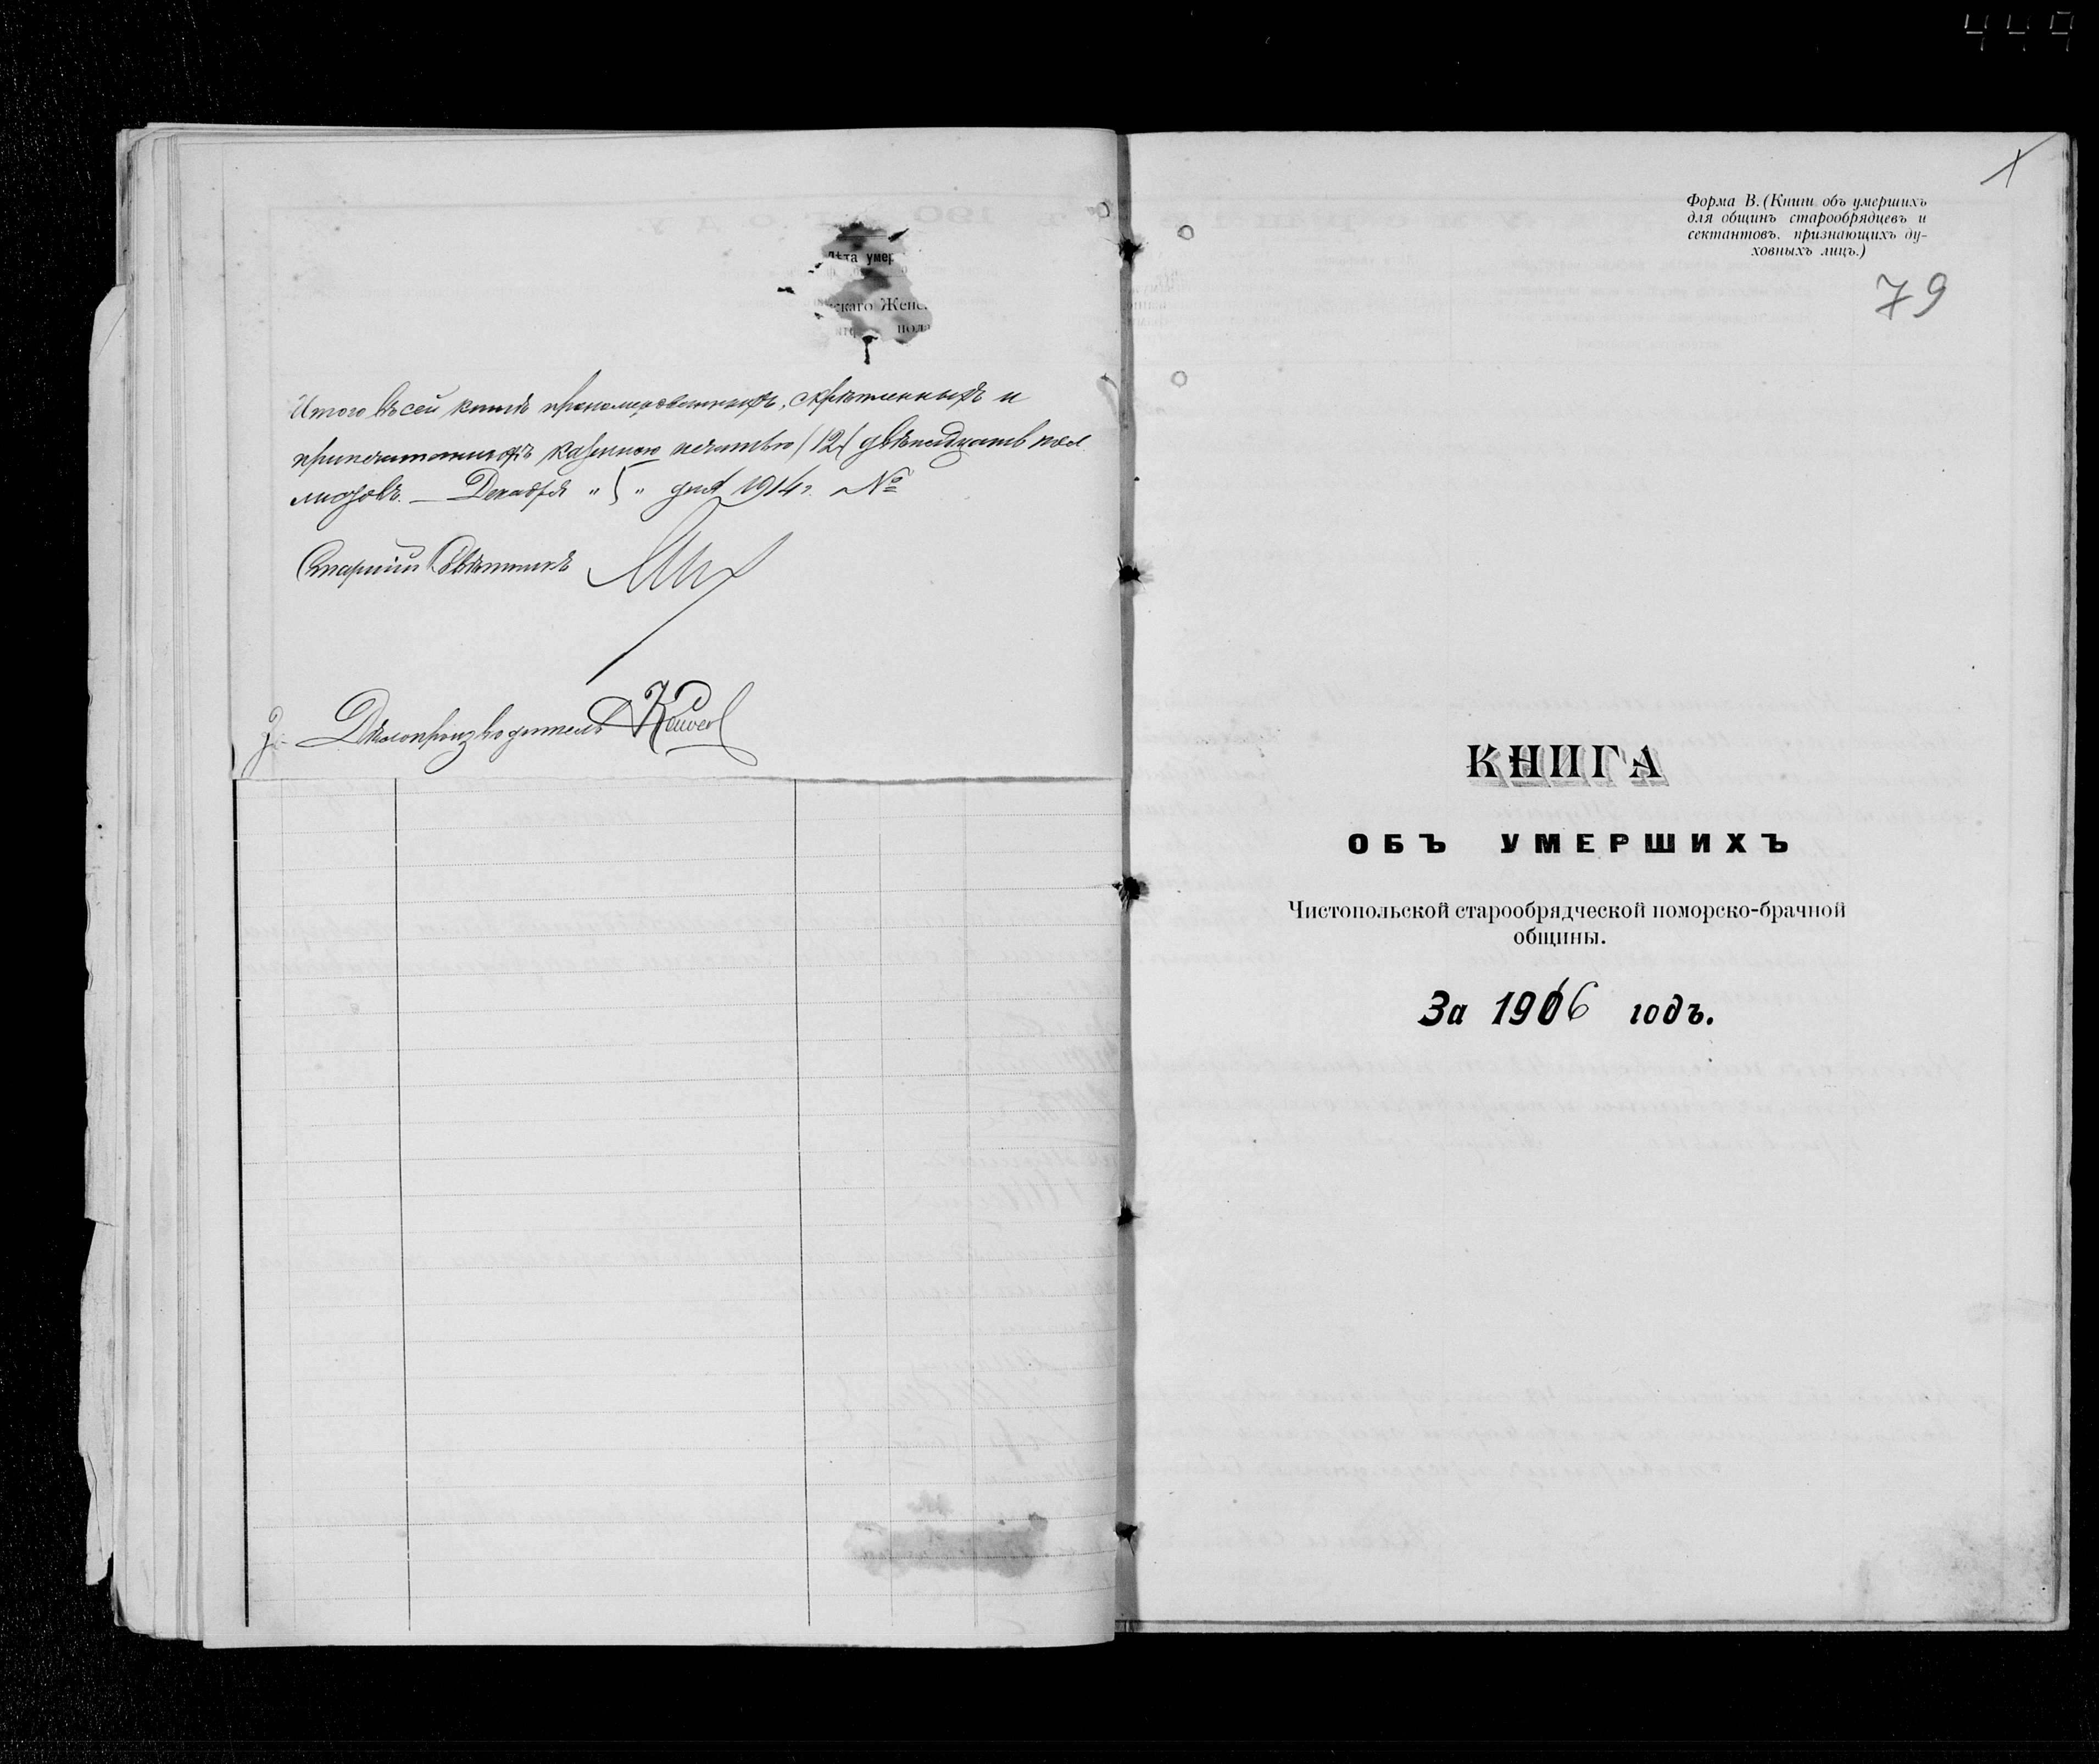 449
Лѣта умер
скаго Женс
пола
Итого въ сей книгѣ прономерованныхъ, скрѣпленныхъ и
припечатанныхъ казенною печатью (12) двѣнадцать пол
листовъ. — Декабря " 5 " дня 1914 г. №
Старшій Совѣтникъ
Дѣлопроизводитель
Форма В. (Книги объ умершихъ
для общинъ старообрядцевъ и
сектантовъ. признающихъ ду-
ховныхъ лицъ.)
79
КНИГА
ОБЪ УМЕРШИХЪ
Чистопольской старообрядческой поморско-брачной
общины.
За 1916 годъ.